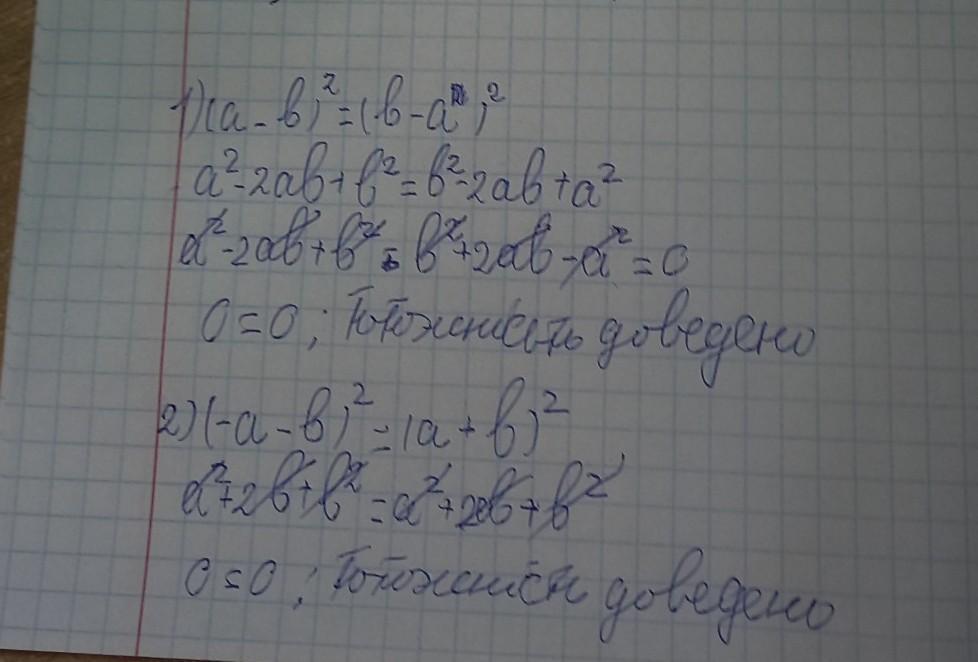 1) (a - b)² = (b - a)²
a² - 2ab + b² = b² - 2ab + a²
a² - 2ab + b² - b² + 2ab - a² = 0
0 = 0 ; Тотожність доведено
2) (-a - b)² = (a + b)²
a² + 2b + b² = a² + 2ab + b²
0 = 0 ; Тотожність доведено